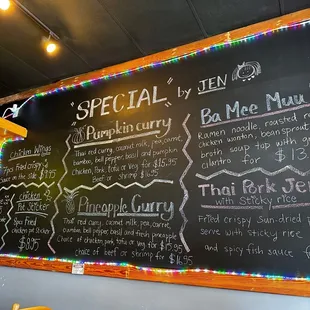 "SPECIAL" by JEN
Chicken Wings
7pcs Fried crispy
on the side $
Chicken
Pot Sticker
5pcs Fried
chicken pot Sticker
$8.95
Pumpkin curry
Thai red curry, coconut milk, pea, carrot,
bamboo, bell pepper, basil and pumpkin
Chicken, Pork, tofu or veg for $15.95
Beef or Shrimp $16.95
Pineapple Curry
Thai red curry, coconut milk, pea, carrot,
bamboo, bell pepper, basil and fresh pineapple
Choice of chicken, pork, tofu or veg for $15.95
Choice of beef or shrimp $16.95
Ba Mee Muu
Ramen noodle, roasted
chicken wonton, beansprout
broth soup top with
cilantro for $13
Thai Pork Jer
with sticky rice
Fried crispy Sun-dried
serve with sticky rice
and spicy fish sauce